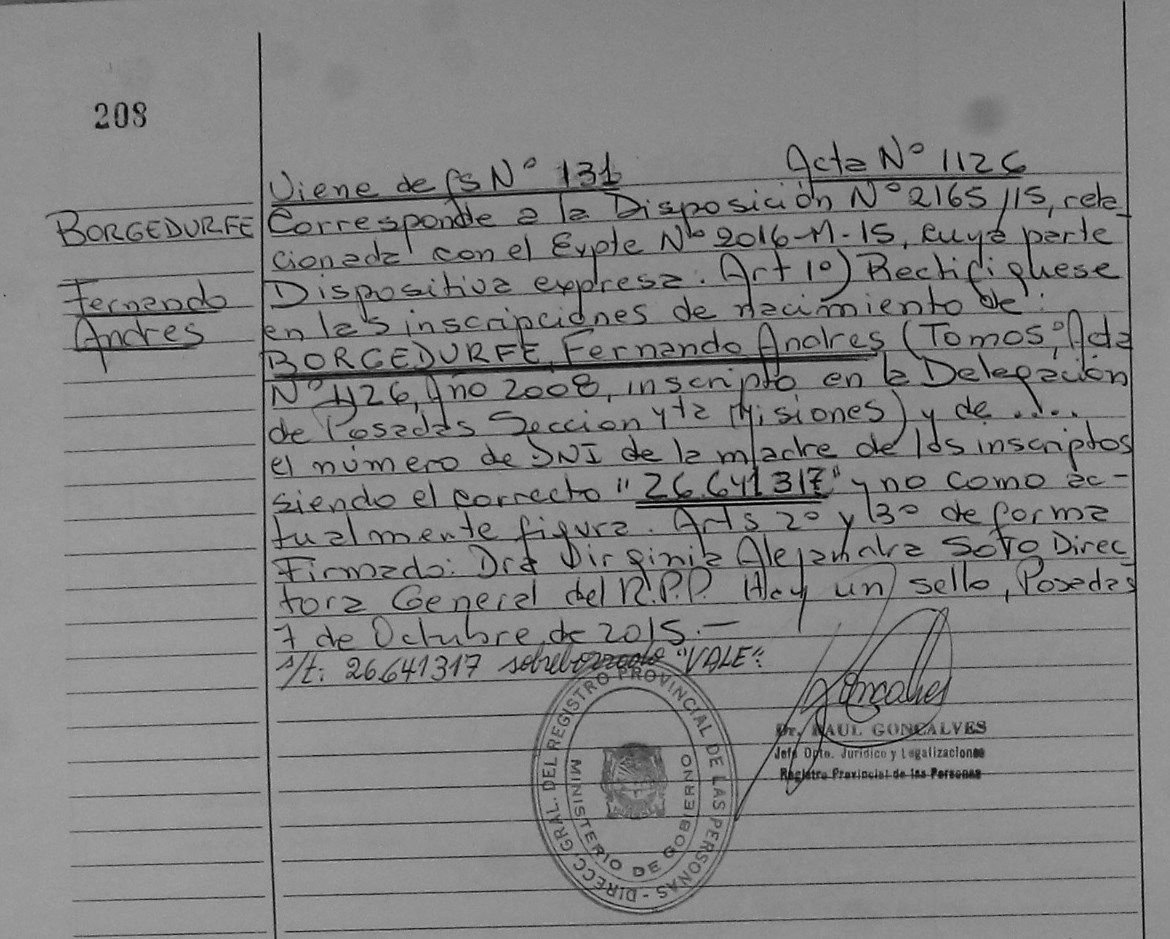 208
Viene de fs Nº 131 Acta Nº 1126
BORGEDURFE
Fernando
Andres
Corresponde a la Disposición Nº 2165/15, rela
cionada con el Expte Nº 2016-M-15, cuya parte
Dispositiva expresa: Art 1º) Rectifiquese
en las inscripciones de nacimiento de:
BORGEDURFE, Fernando Andres (Tomo 5º, Acta
Nº 1126, Año 2008, inscripto en la Delegación
de Posadas Seccion 4ta Misiones) y de ....
el número de DNI de la madre de los inscriptos
siendo el correcto "26.641317" y no como ac-
tualmente figura. Arts 2º y 3º de forma
Firmado: Dra Virginia Alejandra Soto Direc
tora General del R.P.P. Hay un sello, Posadas
7 de Octubre de 2015.-
s/t: 26.641317 sobreborrado "VALE":
Goncalves
Dr. RAUL GONCALVES
Jefe Dpto. Jurídico y Legalizaciones
Registro Provincial de las Personas
DIRECC GRAL. DEL REGISTRO PROVINCIAL DE LAS PERSONAS -
MINISTERIO DE GOBIERNO